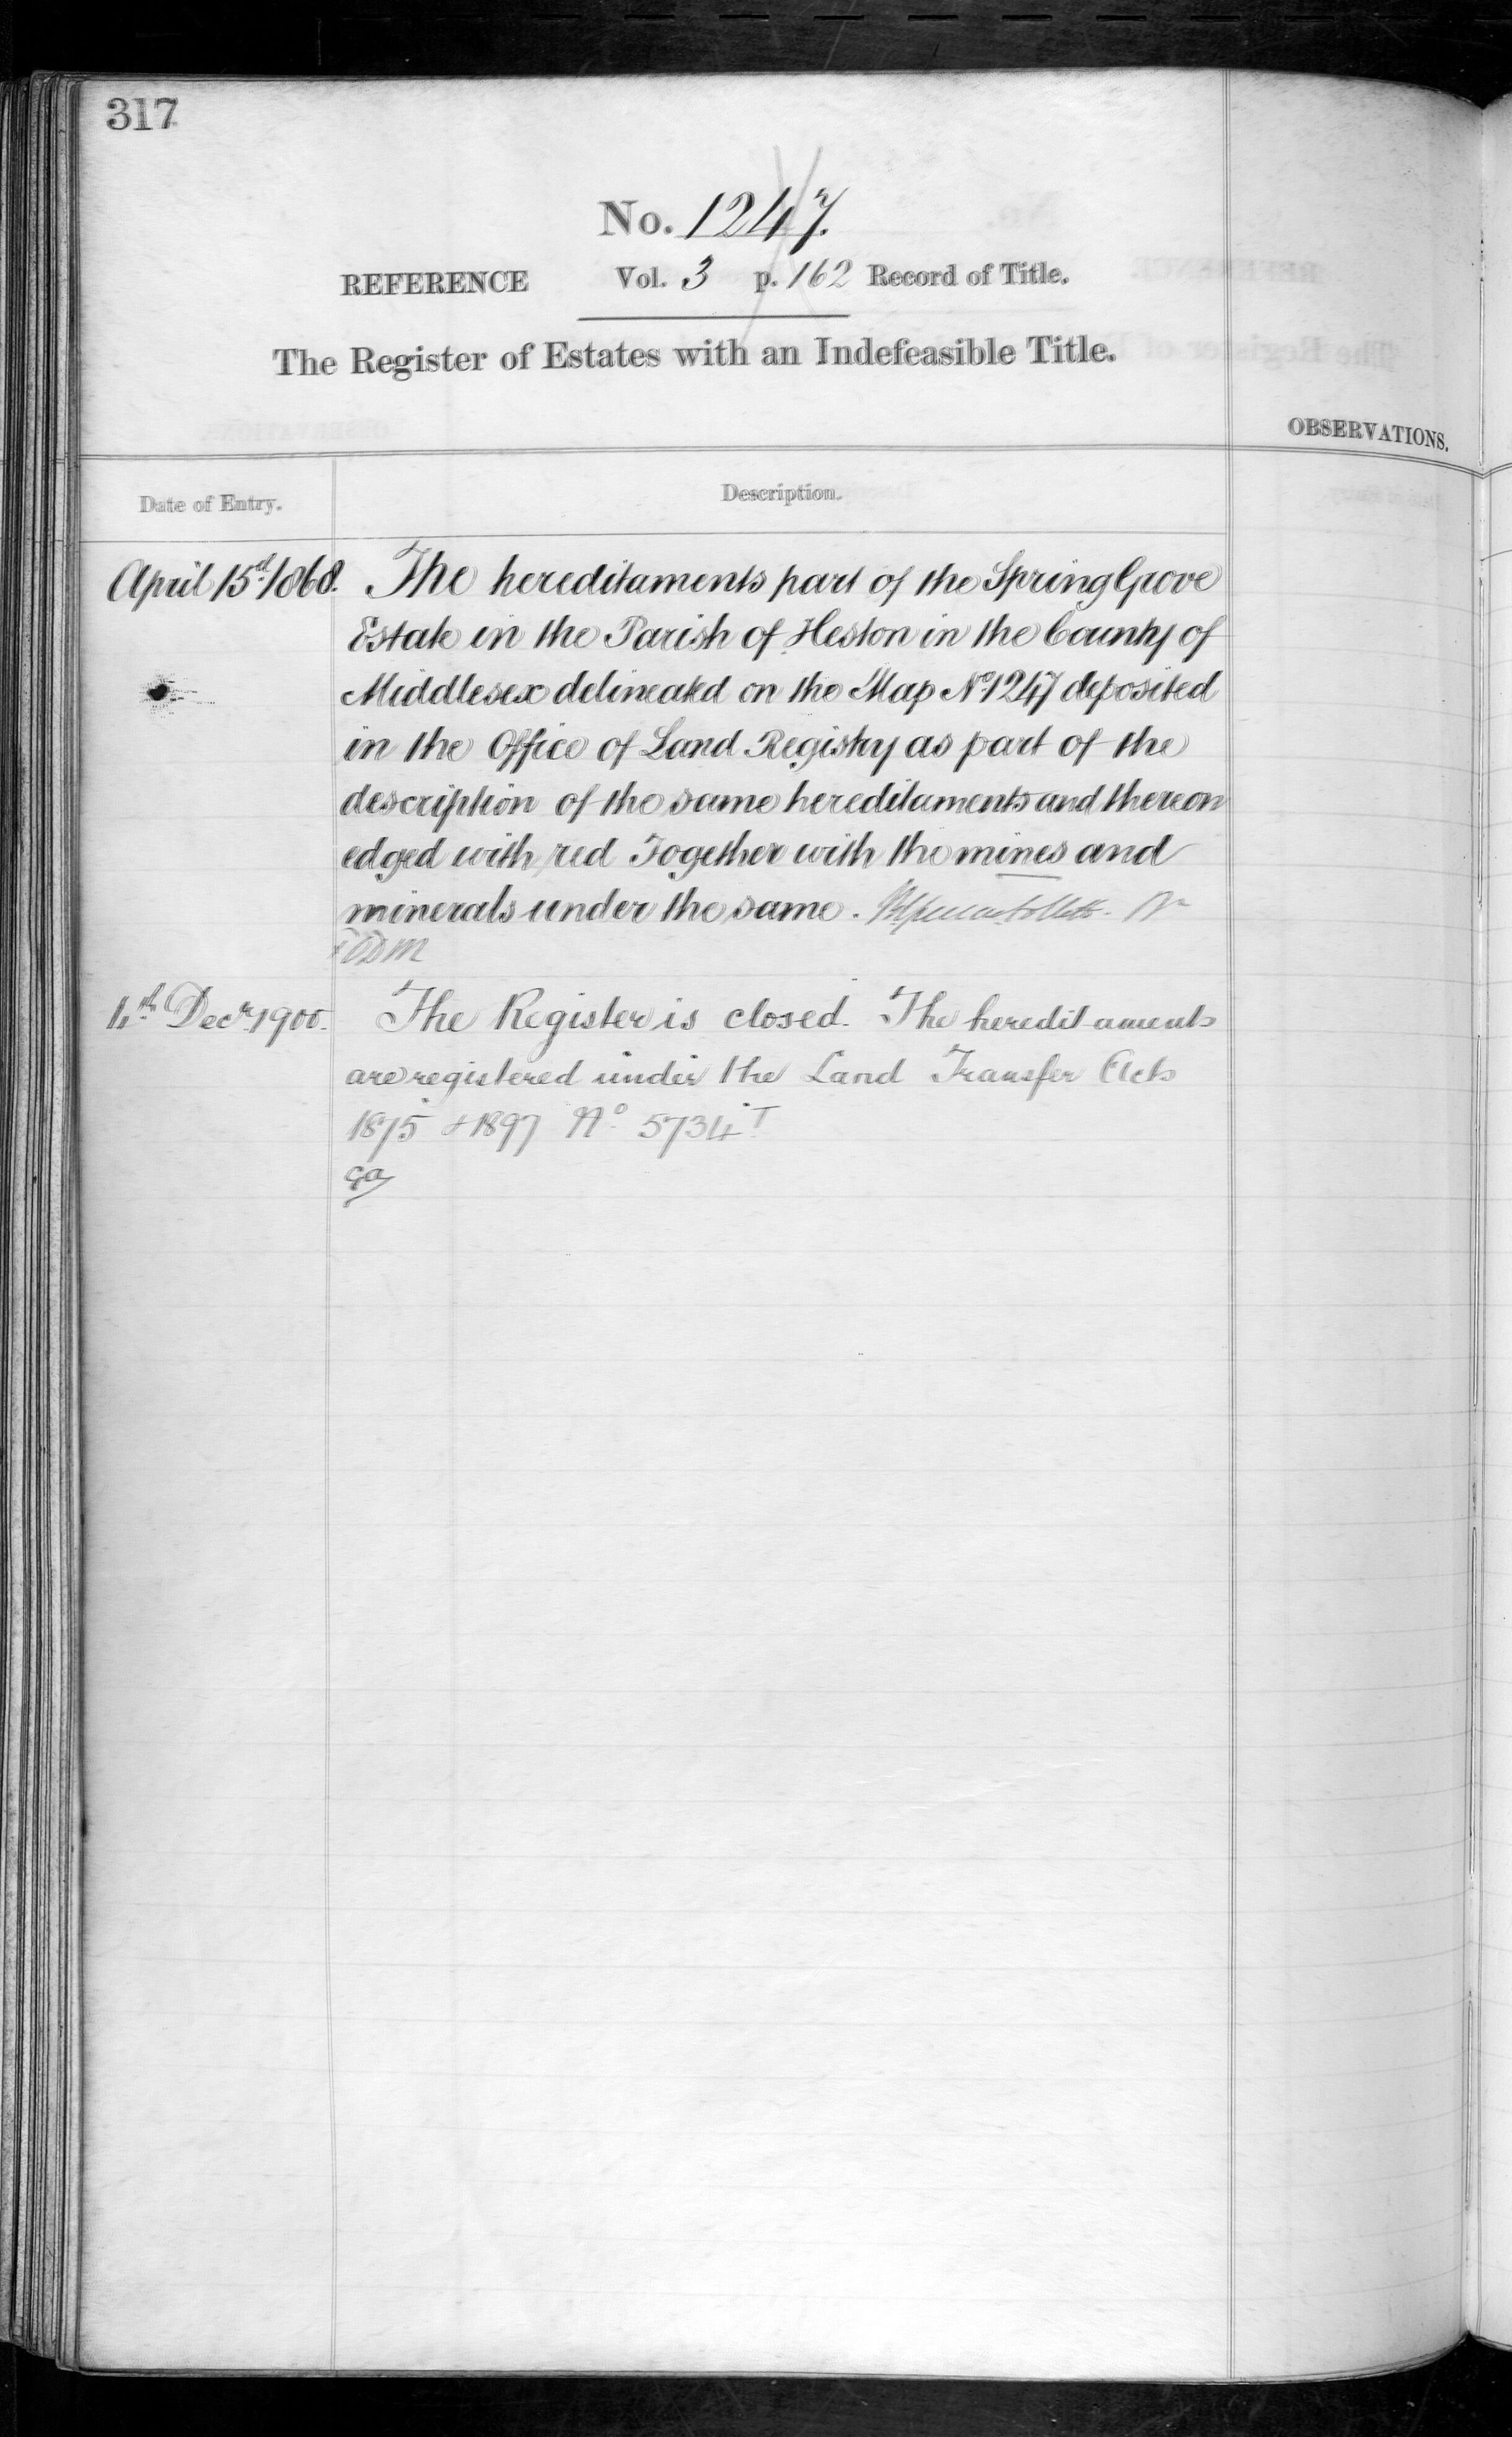 317
No. 1247.
REFERENCE Vol. 3 p. 162 Record of Title.
The Register of Estates with an Indefeasible Title.
OBSERVATIONS.
Date of Entry. Description.
April 15th 1868. The hereditaments part of the Spring Grove
Estate in the Parish of Heston in the County of
Middlesex delineated on the Map No 1247 deposited
in the Office of Land Registry as part of the
description of the same hereditaments and thereon
edged with red Together with the mines and
minerals under the same.
4th Decr 1900. The Register is closed. The hereditaments
are registered under the Land Transfer Acts
1875 & 1897 No 5734 T